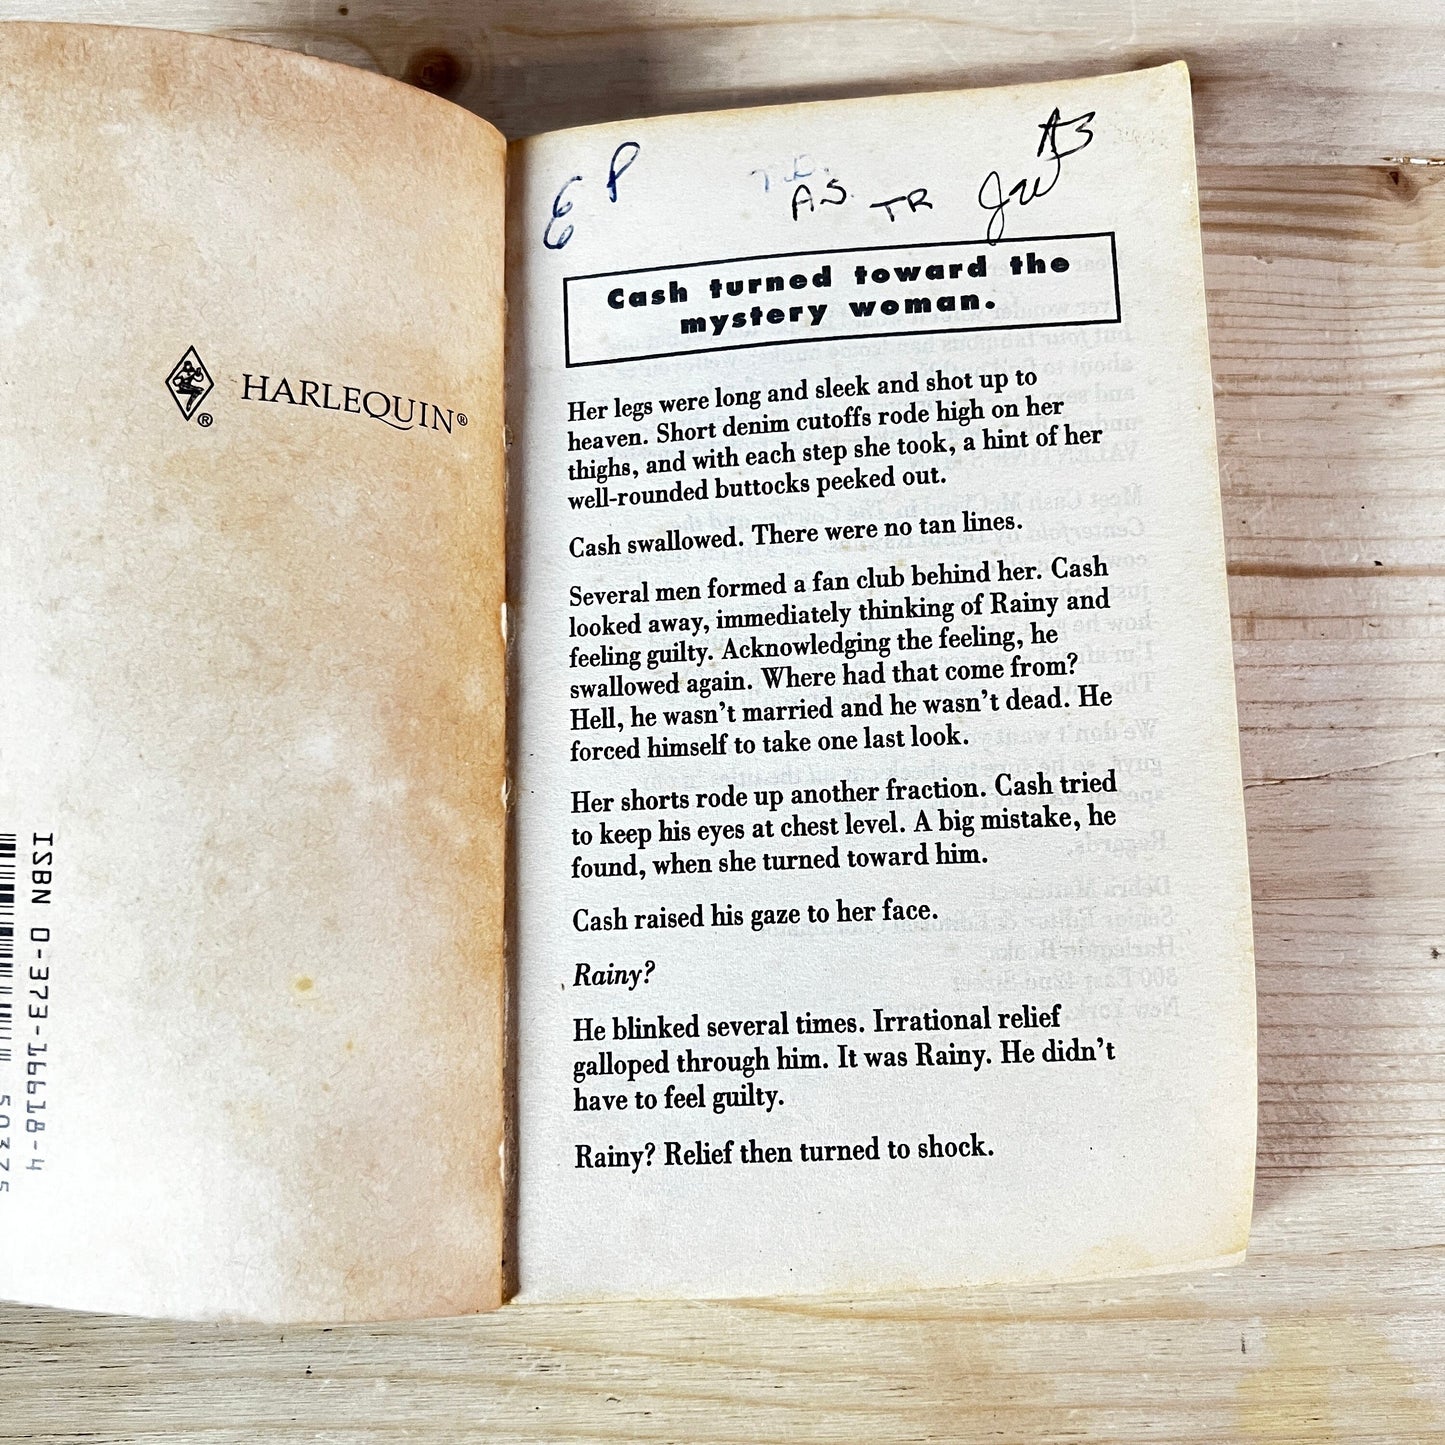 HARLEQUIN®
ISBN 0-373-16618-4
50375
EP
T.D.
A.S.
TR
JW
Cash turned toward the
mystery woman.
Her legs were long and sleek and shot up to
heaven. Short denim cutoffs rode high on her
thighs, and with each step she took, a hint of her
well-rounded buttocks peeked out.
Cash swallowed. There were no tan lines.
Several men formed a fan club behind her. Cash
looked away, immediately thinking of Rainy and
feeling guilty. Acknowledging the feeling, he
swallowed again. Where had that come from?
Hell, he wasn't married and he wasn't dead. He
forced himself to take one last look.
Her shorts rode up another fraction. Cash tried
to keep his eyes at chest level. A big mistake, he
found, when she turned toward him.
Cash raised his gaze to her face.
Rainy?
He blinked several times. Irrational relief
galloped through him. It was Rainy. He didn't
have to feel guilty.
Rainy? Relief then turned to shock.